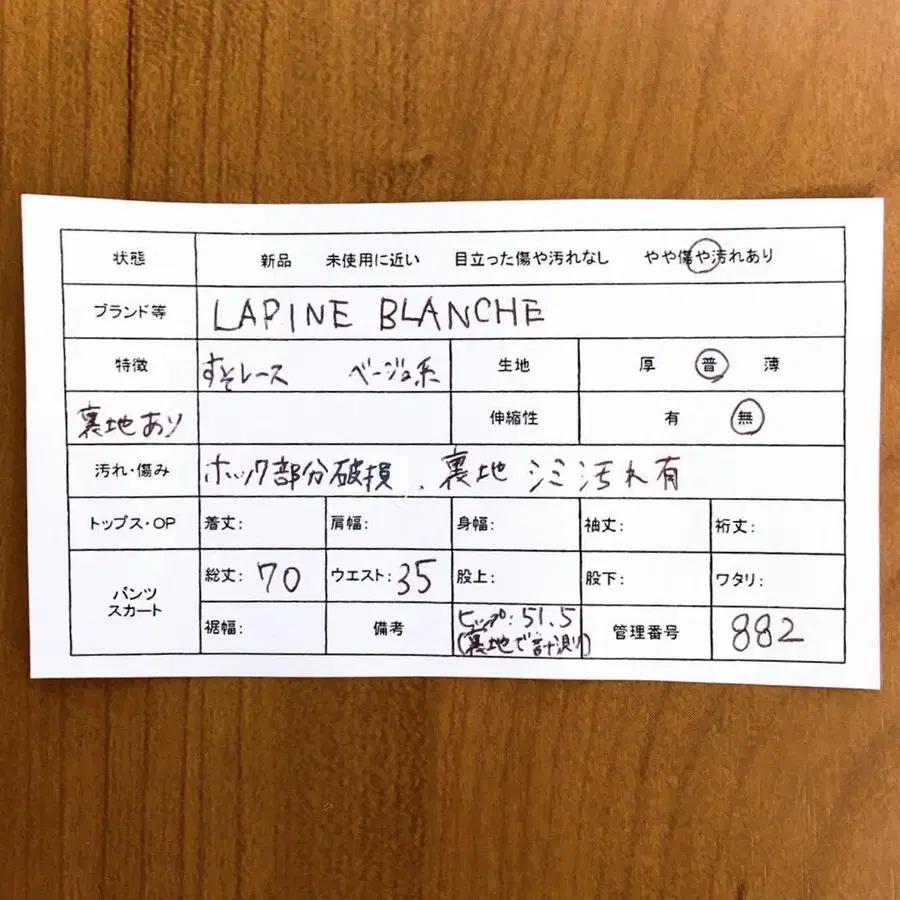 状態 新品 未使用に近い 目立った傷や汚れなし やや傷や汚れあり
ブランド等 LAPINE BLANCHE
特徴 すそレース ベージュ系 生地 厚 普 薄
裏地あり 伸縮性 有 無
汚れ・傷み ホック部分破損、裏地 シミ汚れ有
トップス・OP 着丈: 肩幅: 身幅: 袖丈: 裄丈:
パンツ
スカート
総丈: 70 ウエスト: 35 股上: 股下: ワタリ:
裾幅: 備考 ヒップ: 51.5
(裏地で計測)
管理番号 882